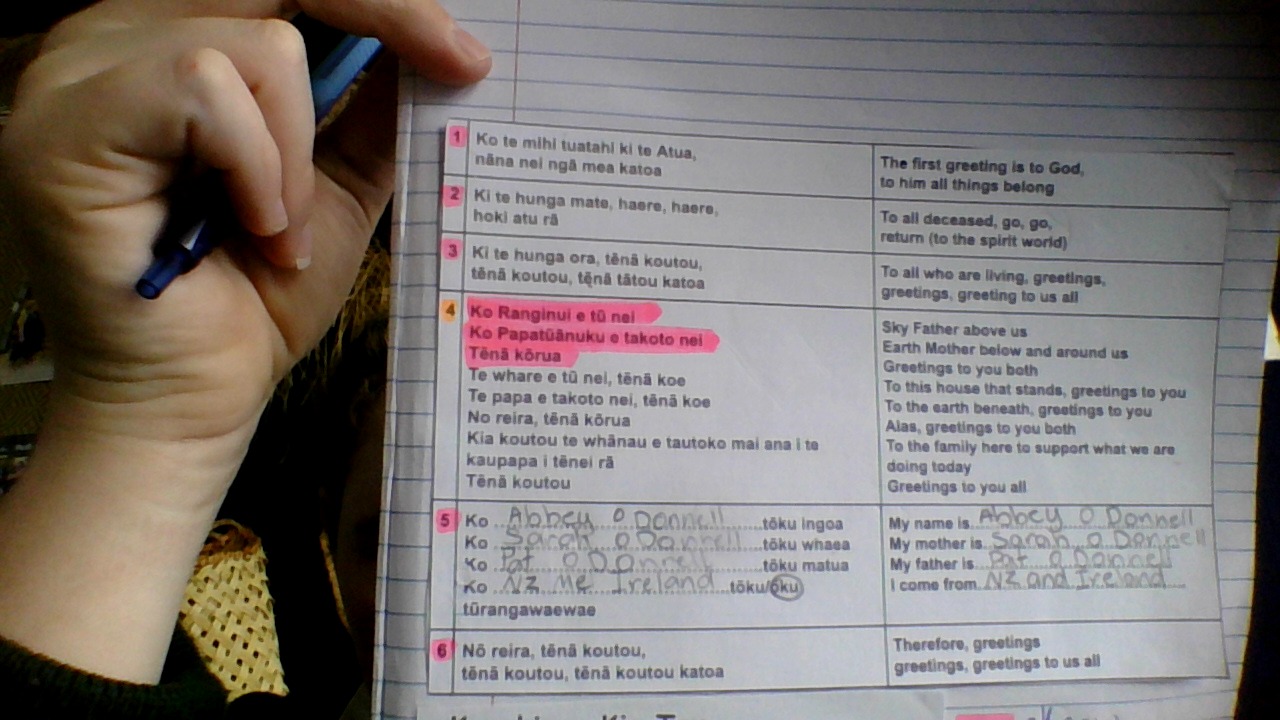 1
Ko te mihi tuatahi ki te Atua,
nāna nei ngā mea katoa
The first greeting is to God,
to him all things belong
2
Ki te hunga mate, haere, haere,
hoki atu rā
To all deceased, go, go,
return (to the spirit world)
3
Ki te hunga ora, tēnā koutou,
tēnā koutou, tēnā tātou katoa
To all who are living, greetings,
greetings, greeting to us all
4
Ko Ranginui e tū nei
Ko Papatūānuku e takoto nei
Tēnā kōrua
Te whare e tū nei, tēnā koe
Te papa e takoto nei, tēnā koe
No reira, tēnā kōrua
Kia koutou te whānau e tautoko mai ana i te
kaupapa i tēnei rā
Tēnā koutou
Sky Father above us
Earth Mother below and around us
Greetings to you both
To this house that stands, greetings to you
To the earth beneath, greetings to you
Alas, greetings to you both
To the family here to support what we are
doing today
Greetings to you all
5
Ko Abbey O Donnell tōku ingoa
Ko Sarah O Donnell tōku whaea
Ko Pat O Donnell tōku matua
Ko NZ me Ireland tōku/ōku
tūrangawaewae
My name is Abbey O Donnell
My mother is Sarah O Donnell
My father is Pat O Donnell
I come from NZ and Ireland
6
Nō reira, tēnā koutou,
tēnā koutou, tēnā koutou katoa
Therefore, greetings
greetings, greetings to us all